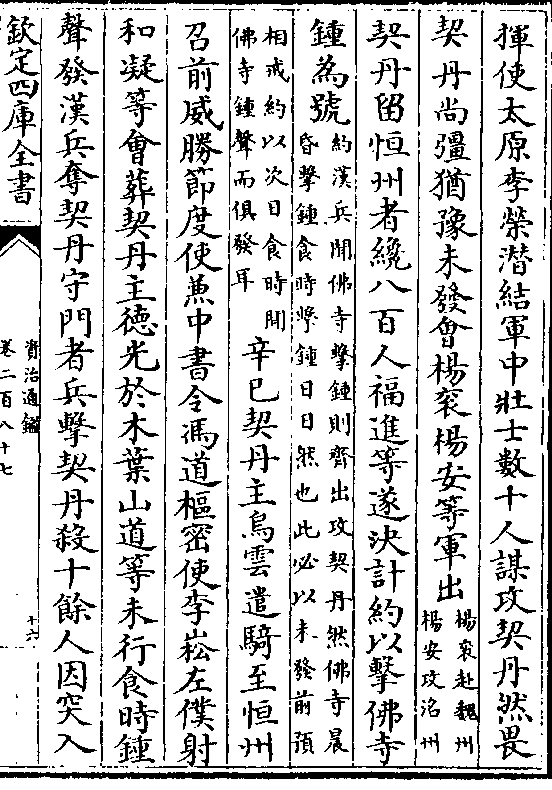 揮使太原李榮潛結軍中壯士數十人謀攻契丹然畏
契丹尚彊猶豫未發會楊衮楊安等軍出
楊衮赴魏州
楊安攻洺州
契丹留恒州者纔八百人福進等遂決計約以擊佛寺
鍾為號
約漢兵聞佛寺擊鍾則齊出攻契丹然佛寺晨
昏擊鍾食時擊鍾日日然也此必以未發前預
相戒約以次日食時聞
佛寺鍾聲而俱發耳
辛巳契丹主烏雲遣騎至恒州
召前威勝節度使兼中書令馮道樞密使李崧左僕射
和凝等會葬契丹主徳光於木葉山道等未行食時鍾
聲發漢兵奪契丹守門者兵擊契丹殺十餘人因突入
欽定四庫全書
資治通鑑
卷二百八十七
十六